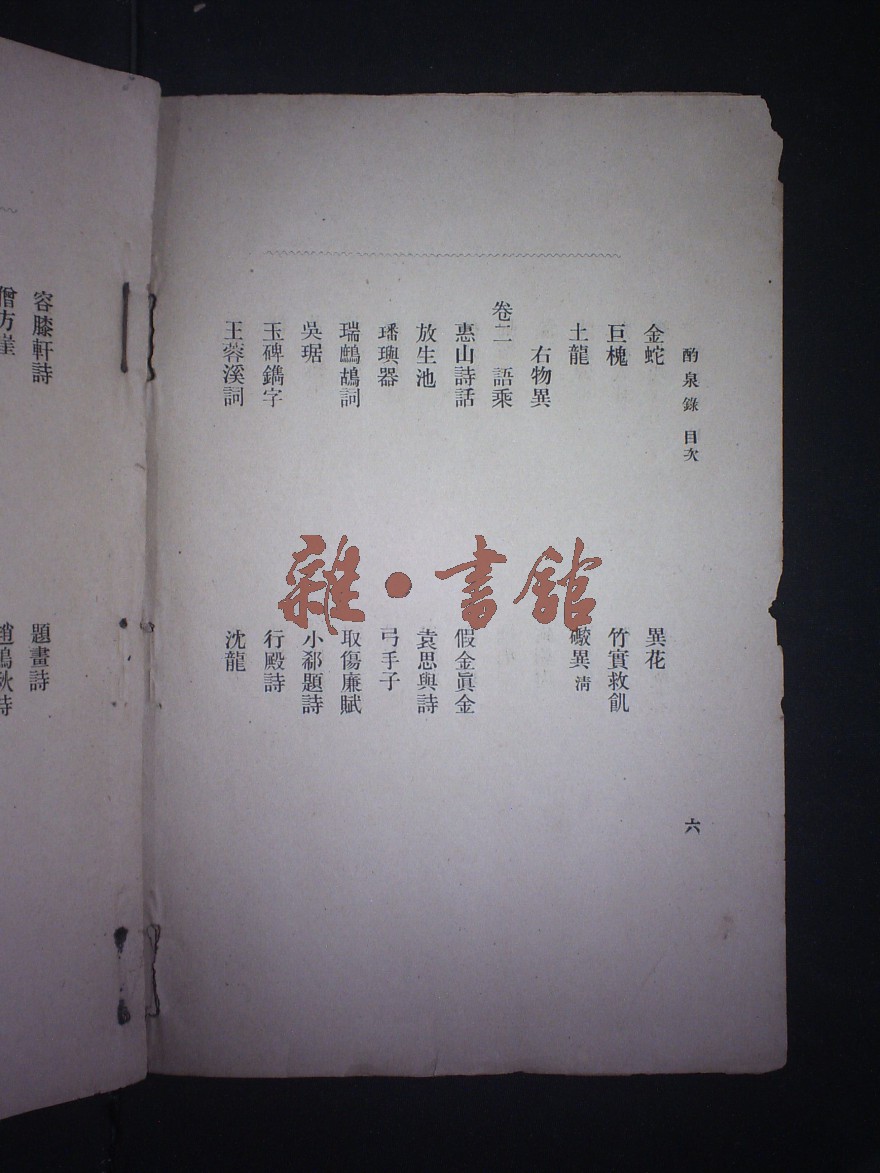 酌泉錄 目次
六
金蛇 異花
巨槐 竹實救飢
土龍 礮異 清
右物異
卷二 語乘
惠山詩話 假金眞金
放生池 袁思與詩
璠璵器 弓手子
瑞鷓鴣詞 取傷廉賦
吳琚 小郗題詩
玉碑鐫字 行殿詩
王蓉溪詞 沈龍
容膝軒詩 題畫詩
僧方崖
雜·書館